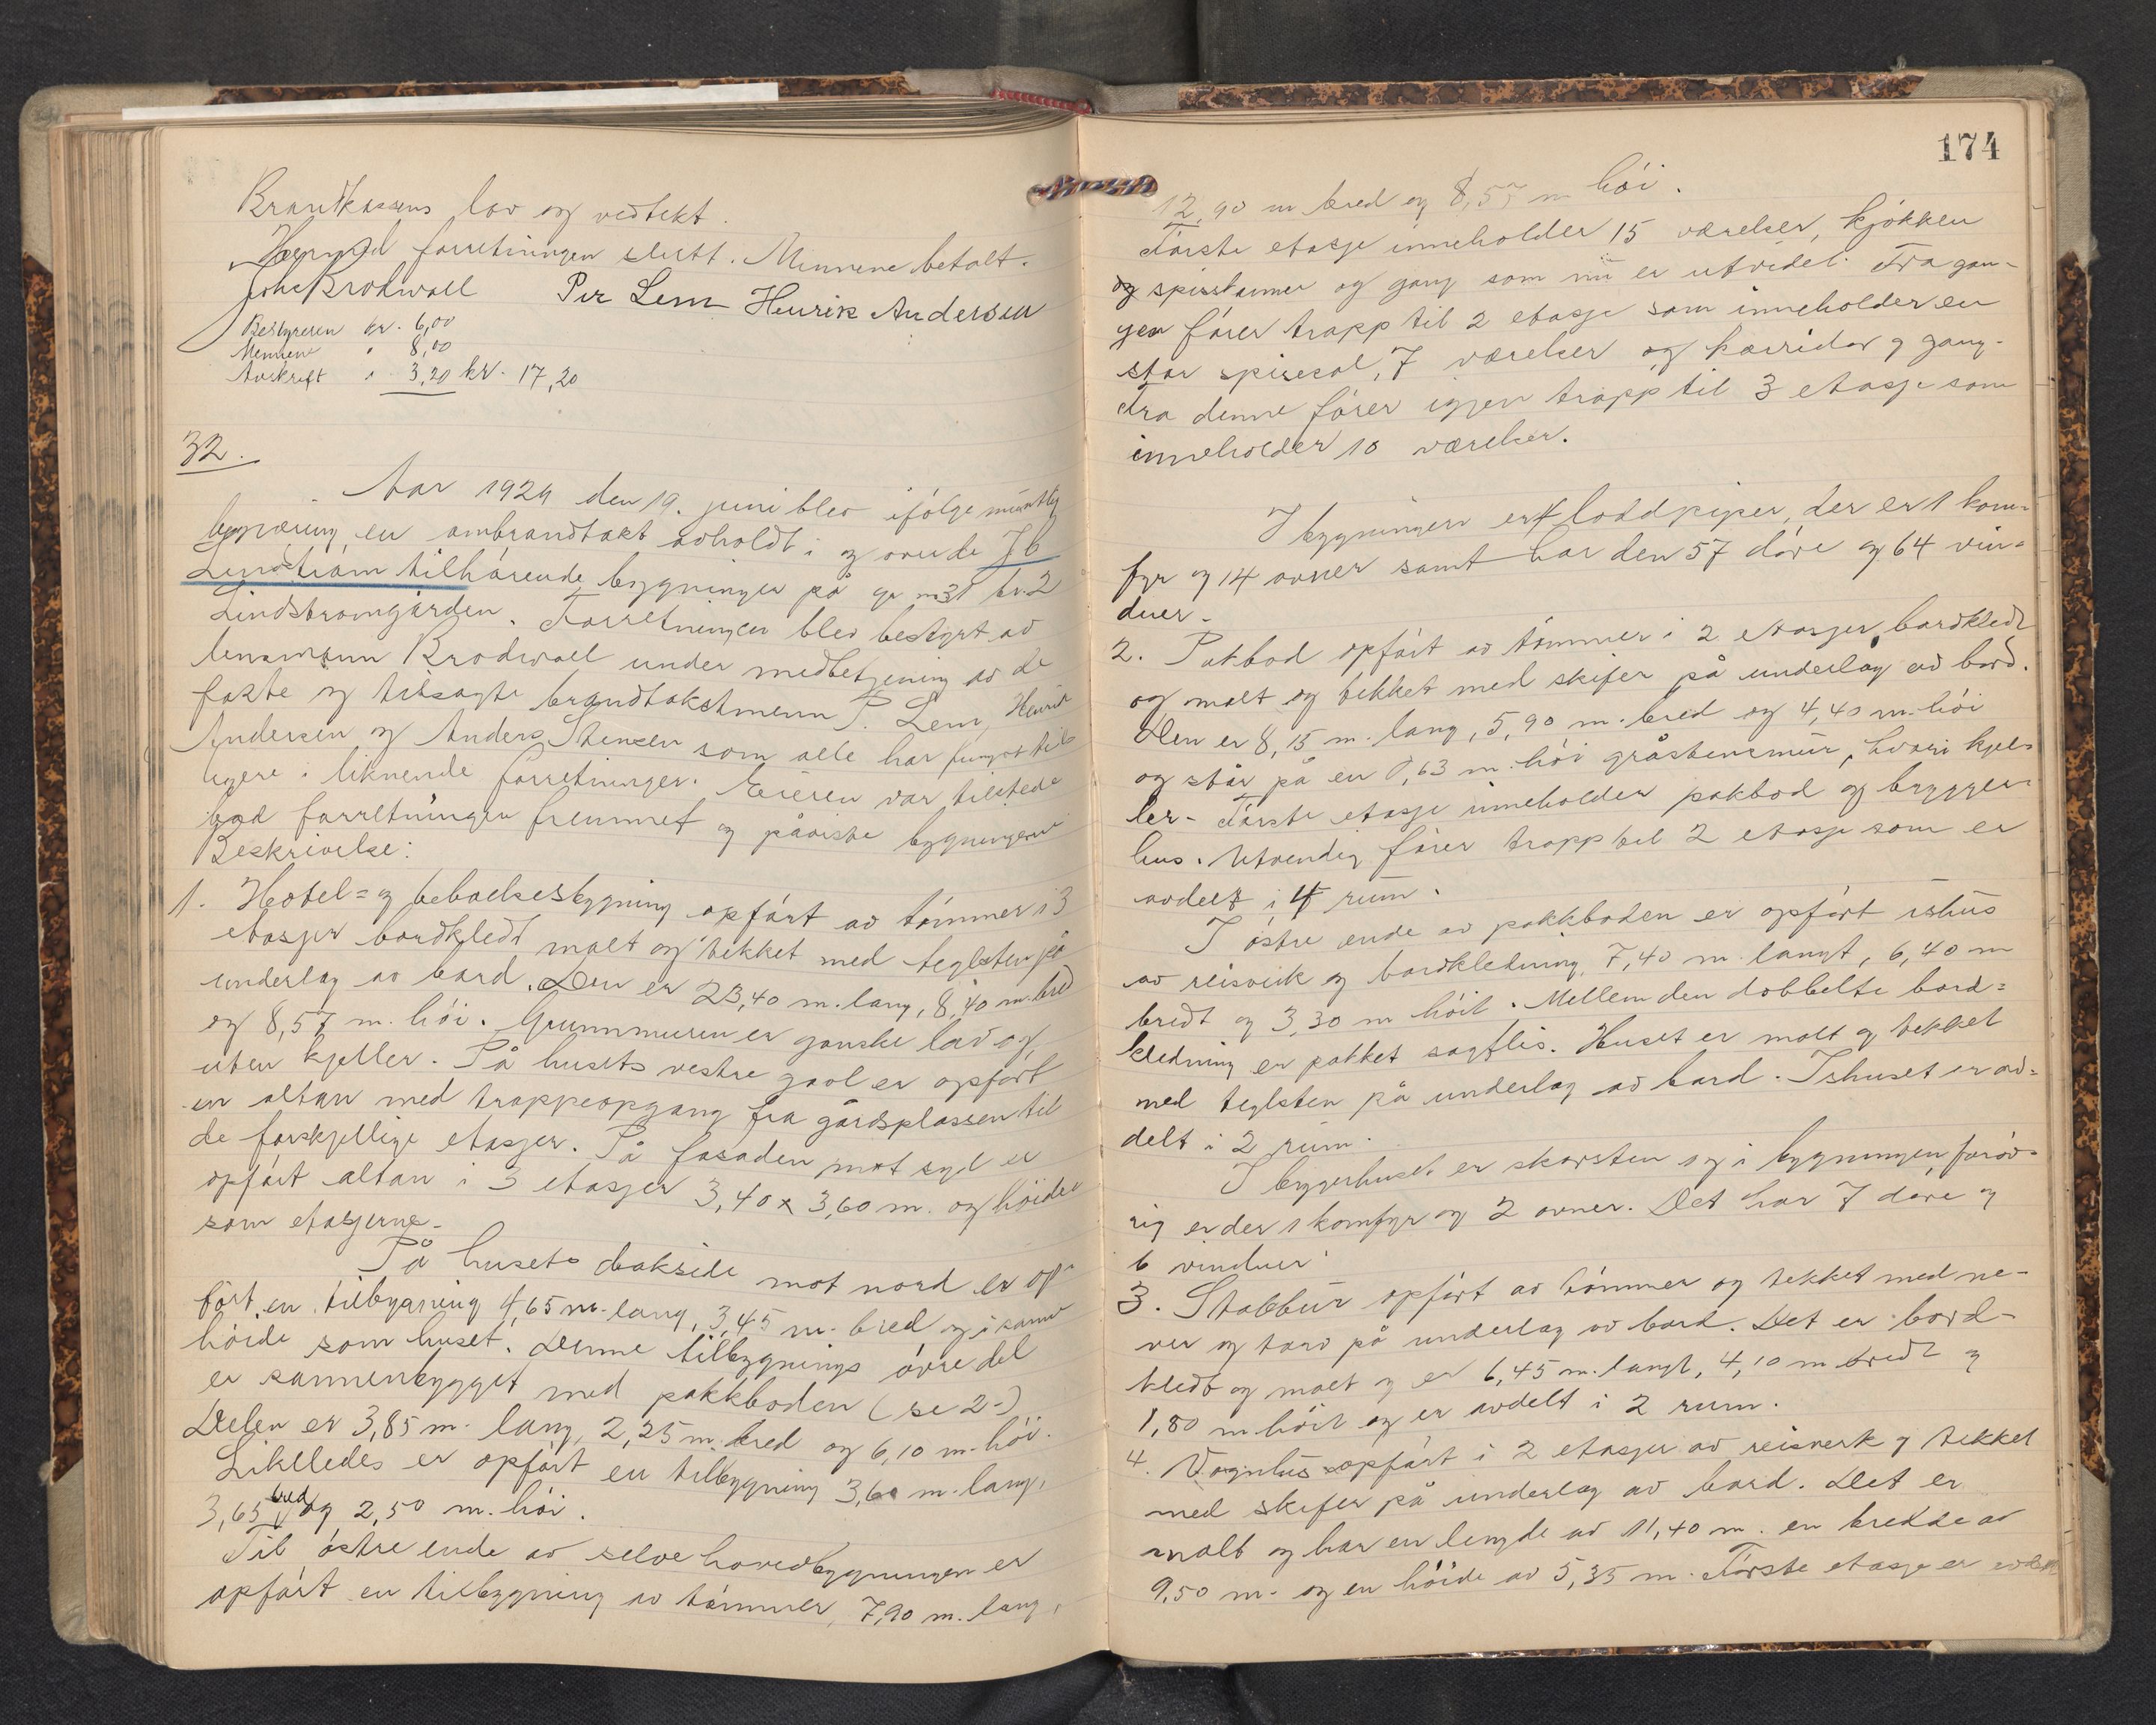 Brandkassens lov og vedtekt.
Hermed forretningen slutt. Mennene betalt.
Joh. Brodwall Per Lem Henrik Andersen
Bestyreren kr. 6,00
Mennene " 8,00
Avskrift " 3,20 kr. 17,20
32.
Aar 1924 den 19. juni blev ifölge muntlig
begjæring en ombrandtakt avholdt i og over de J b
Lindström tilhörende bygninger på gr no 31 br. 2
Lindströmgården. Forretningen blev bestyrt av
lensmann Brodwall under medbetjening av de
faste og tilsagte brandtakstmenn P. Lem, Henrik
Andersen og Anders Stensen som alle har fungert tid-
ligere i liknende forretninger. Eieren var tilstede
bad forretningen fremmet og påviste bygningene
Beskrivelse:
1. Hotel= og beboelsesbygning opfört av tömmer i 3
etasjer bordkledt malt og tekket med teglsten på
underlag av bord. Den er 23,40 m. lang, 8,40 m. bred
og 8,57 m. höi. Grunnmuren er ganske lav og
uten kjeller. På husets vestre gavl er opfört
en altan med trappeopgang fra gårdsplassen til
de forskjellige etasjer. På fasaden mot syd er
opfört altan i 3 etasjer 3,40 x 3,60 m. og höider
som etasjerne.
På husets bakside mot nord er op-
fört en tilbygning 4,65 m. lang, 3,45 m. bred og i samme
höide som huset. Denne tilbygnings övre del
er sammenbygget med pakkboden (se 2.)
Delen er 3,85 m. lang, 2,25 m. bred og 6,10 m. höi.
Likeledes er opfört en tilbygning 3,60 m. lang,
3,65 bred og 2,50 m. höi.
Til östre ende av selve hovedbygningen er
opfört en tilbygning av tömmer, 7,90 m. lang,
174
12,90 m bred og 8,57 m höi.
Förste etasje inneholder 15 værelser, kjökken
og spisskamer og gang som nu er utvidet. Fra gan-
gen förer trapp til 2 etasje som inneholder en
stor spisesal, 7 værelser og korridor og gang.
Fra denne förer igjen trapp til 3 etasje som
inneholder 10 værelser.
I bygningen er 4 loddpiper, der er 1 kom-
fyr og 14 ovner samt har den 57 döre og 64 vin-
duer.
2. Pakbod opfört av tömmer i 2 etasjer, bordkledt
og malt og tekket med skifer på underlag av bord.
Den er 8,15 m. lang, 5,90 m. bred og 4,40 m. höi
og står på en 0,63 m. höi gråstensmur, hvori kjel-
ler. Förste etasje inneholder pakbod og brygger-
hus. Utvendig förer trapp til 2 etasje som er
avdelt i 4 rum.
I östre ende av pakkboden er opfört ishus
av reisverk og bordkledning, 7,40 m. langt, 6,40 m
bredt og 3,30 m höit. Mellem den dobbelte bord=
kledning er pakket sagflis. Huset er malt og tekket
med teglsten på underlag av bord. Ishuset er av=
delt i 2 rum.
I bryggerhuset er skorsten og i bygningen foröv-
rig er der 1 komfyr og 2 ovner. Det har 7 döre og
6 vinduer.
3. Stabbur opfört av tömmer og tekket med ne-
ver og torv på underlag av bord. Det er bord-
kledt og malt og er 6,45 m. langt, 4,10 m bredt og
1,80 m höit og er avdelt i 2 rum.
4. Vognhus opfört i 2 etasjer av reisverk og tekket
med skifer på underlag av bord. Det er
malt og har en lengde av 11,40 m. en bredde av
9,50 m. og en höide av 5,35 m. Förste etasje er avdelt